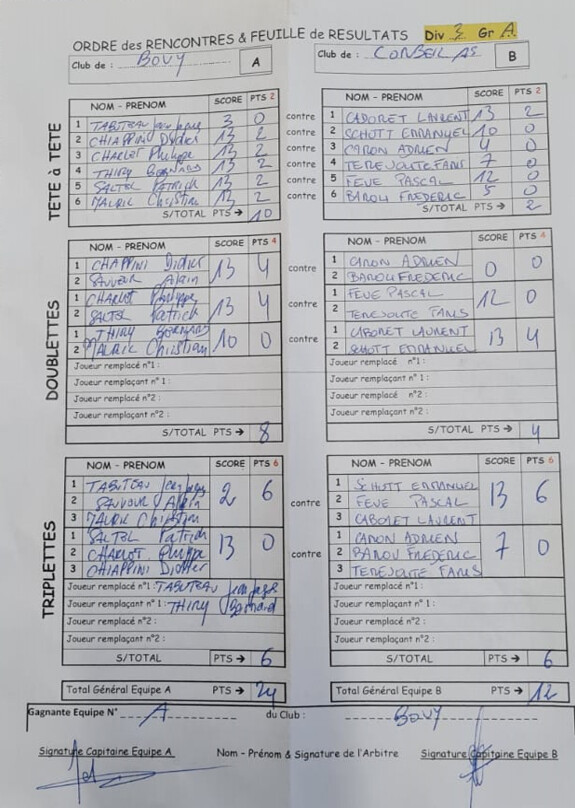 ORDRE des RENCONTRES & FEUILLE de RESULTATS Div 3 Gr A
Club de : BOVY A Club de : B
NOM - PRENOM SCORE PTS 2 NOM - PRENOM SCORE PTS 2
TETE à TETE
1 TABUTEAU 3 0 contre 1 CABORET LAURENT 13 2
2 CHIAPPINI Didier 13 2 contre 2 SCHOTT EMMANUEL 10 0
3 CHARLOT Philippe 13 2 contre 3 CARON ADRIEN 4 0
4 THIRY Bernard 13 2 contre 4 TEREJOUTE FARIS 7 0
5 SALTEL Patrick 13 2 contre 5 FEVE PASCAL 12 0
6 MAURIC Christian 13 2 contre 6 BAROU FREDERIC 5 0
S/TOTAL PTS → 10 S/TOTAL PTS → 2
NOM - PRENOM SCORE PTS 4 NOM - PRENOM SCORE PTS 4
DOUBLETTES
1 CHIAPPINI Didier 13 4 contre 1 CARON ADRIEN 0 0
2 SAUVEUR Alain 2 BAROU FREDERIC
1 CHARLOT Philippe 13 4 contre 1 FEVE PASCAL 12 0
2 SALTEL Patrick 2 TEREJOUTE FARIS
1 THIRY Bernard 10 0 contre 1 CABORET LAURENT 13 4
2 MAURIC Christian 2 SCHOTT EMMANUEL
Joueur remplacé n°1 : Joueur remplacé n°1 :
Joueur remplaçant n°1 : Joueur remplaçant n°1 :
Joueur remplacé n°2 : Joueur remplacé n°2 :
Joueur remplaçant n°2 : Joueur remplaçant n°2 :
S/TOTAL PTS → 8 S/TOTAL PTS → 4
NOM - PRENOM SCORE PTS 6 NOM - PRENOM SCORE PTS 6
TRIPLETTES
1 TABUTEAU 2 6 contre 1 SCHOTT EMMANUEL 13 6
2 SAUVEUR Alain 2 FEVE PASCAL
3 MAURIC Christian 3 CABORET LAURENT
1 SALTEL Patrick 13 0 contre 1 CARON ADRIEN 7 0
2 CHARLOT Philippe 2 BAROU FREDERIC
3 CHIAPPINI Didier 3 TEREJOUTE FARIS
Joueur remplacé n°1 : TABUTEAU Joueur remplacé n°1 :
Joueur remplaçant n°1 : THIRY Bernard Joueur remplaçant n°1 :
Joueur remplacé n°2 : Joueur remplacé n°2 :
Joueur remplaçant n°2 : Joueur remplaçant n°2 :
S/TOTAL PTS → 6 S/TOTAL PTS → 6
Total Général Equipe A PTS → 24 Total Général Equipe B PTS → 12
Gagnante Equipe N° A du Club : BOVY
Signature Capitaine Equipe A Nom - Prénom & Signature de l'Arbitre Signature Capitaine Equipe B